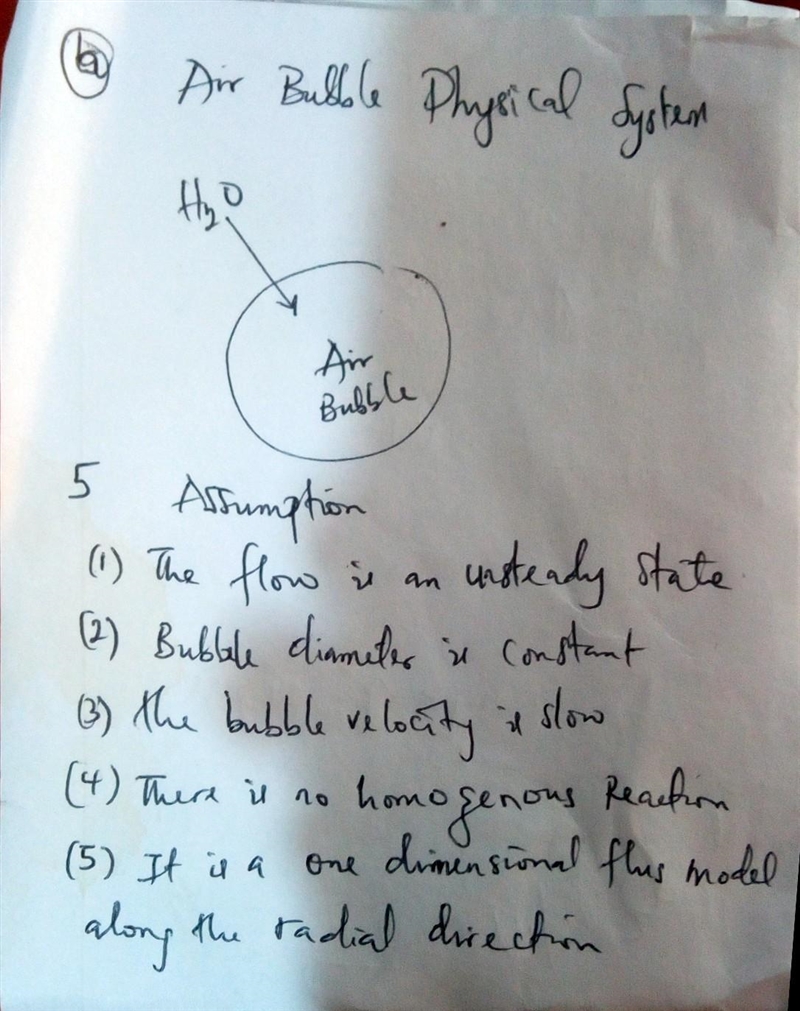 (a)
Air Bubble Physical System
H2O
Air
Bubble
5 Assumption
(1) The flow is an unsteady state
(2) Bubble diameter is constant
(3) the bubble velocity is slow
(4) There is no homogenous Reaction
(5) It is a one dimensional flus model
along the radial direction